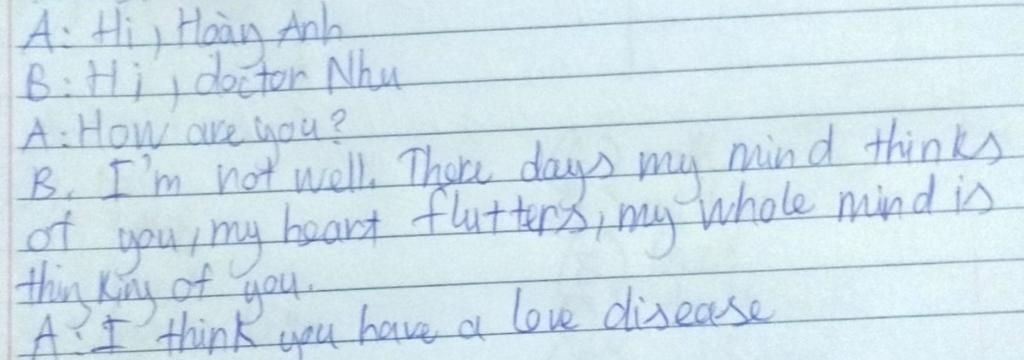 A: Hi, Hoàng Anh
B: Hi, doctor Nhu
A: How are you?
B. I'm not well. There days my mind thinks
of you, my heart flutters, my whole mind is
thinking of you.
A: I think you have a love disease